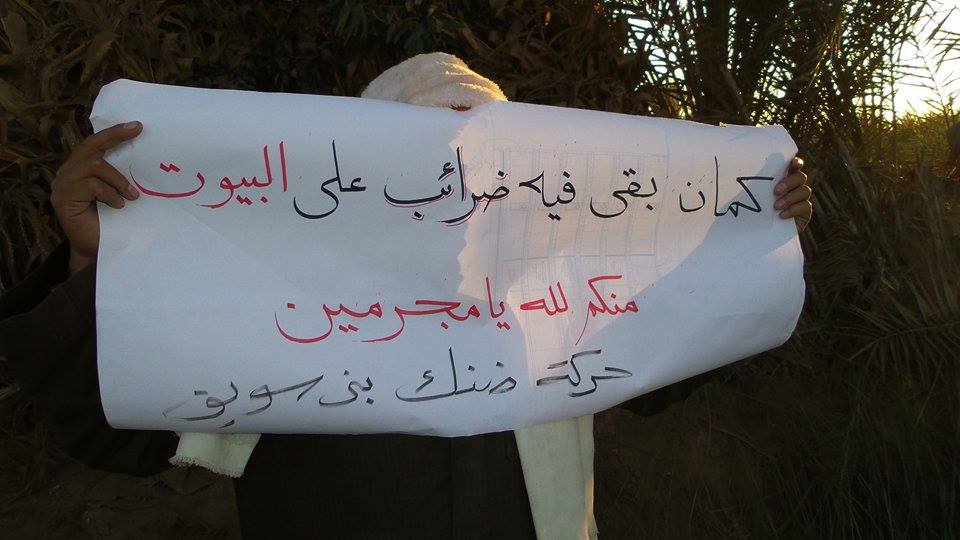 كمان بقى فيه ضرائب على البيوت
منكم لله يا مجرمين
حركة ضنك بنى سويف